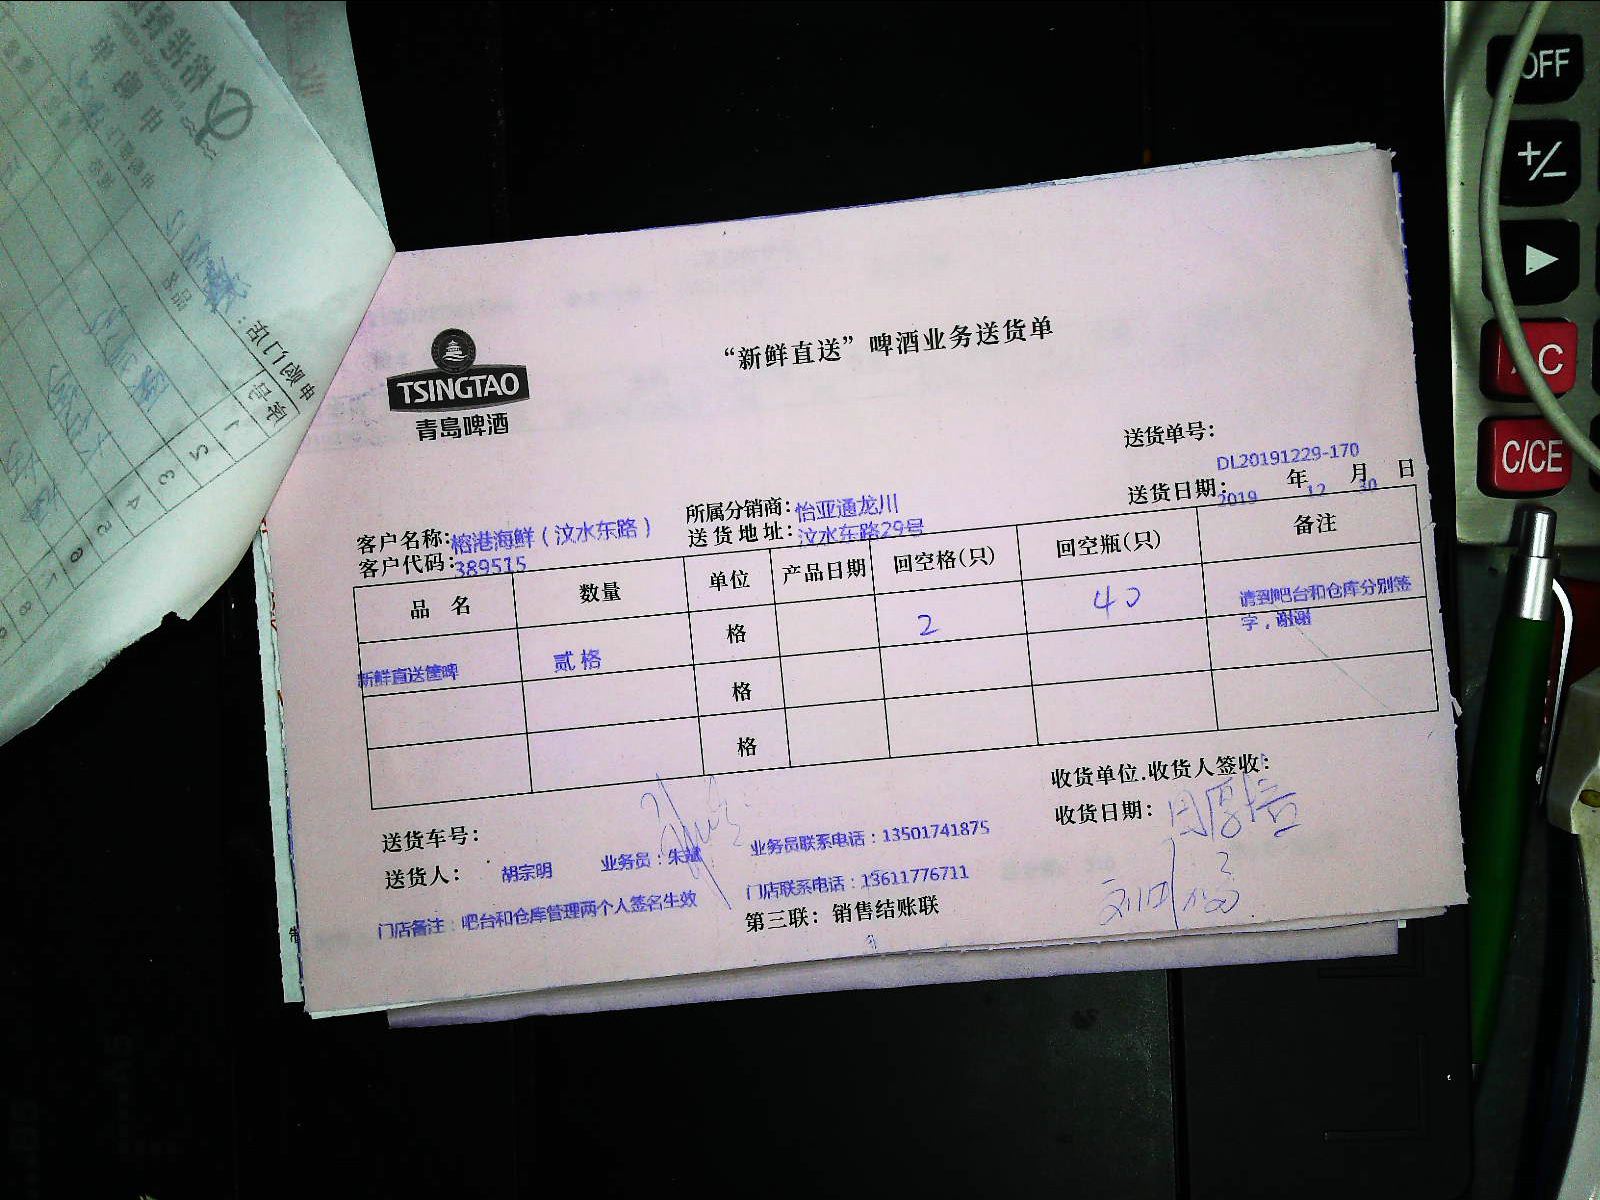 TSINGTAO
青島啤酒
“新鲜直送”啤酒业务送货单
送货单号：
DL20191229-170
送货日期： 2019 年 12 月 30 日
所属分销商：怡亚通龙川
客户名称：榕港海鲜（汶水东路）
送货地址：汶水东路29号
客户代码：389515
品 名 数量 单位 产品日期 回空格(只) 回空瓶(只) 备注
新鲜直送筐啤 贰格 格 2 40 请到吧台和仓库分别签
字，谢谢
格
格
收货单位.收货人签收：
收货日期：
送货车号：
送货人： 胡宗明 业务员：朱斌 业务员联系电话：13501741875
门店联系电话：13611776711
门店备注：吧台和仓库管理两个人签名生效
第三联：销售结账联
OFF
+/-
AC
C/CE
申购部门/店：
序号
品名
1
2
3
4
5
6
7
8
申购单